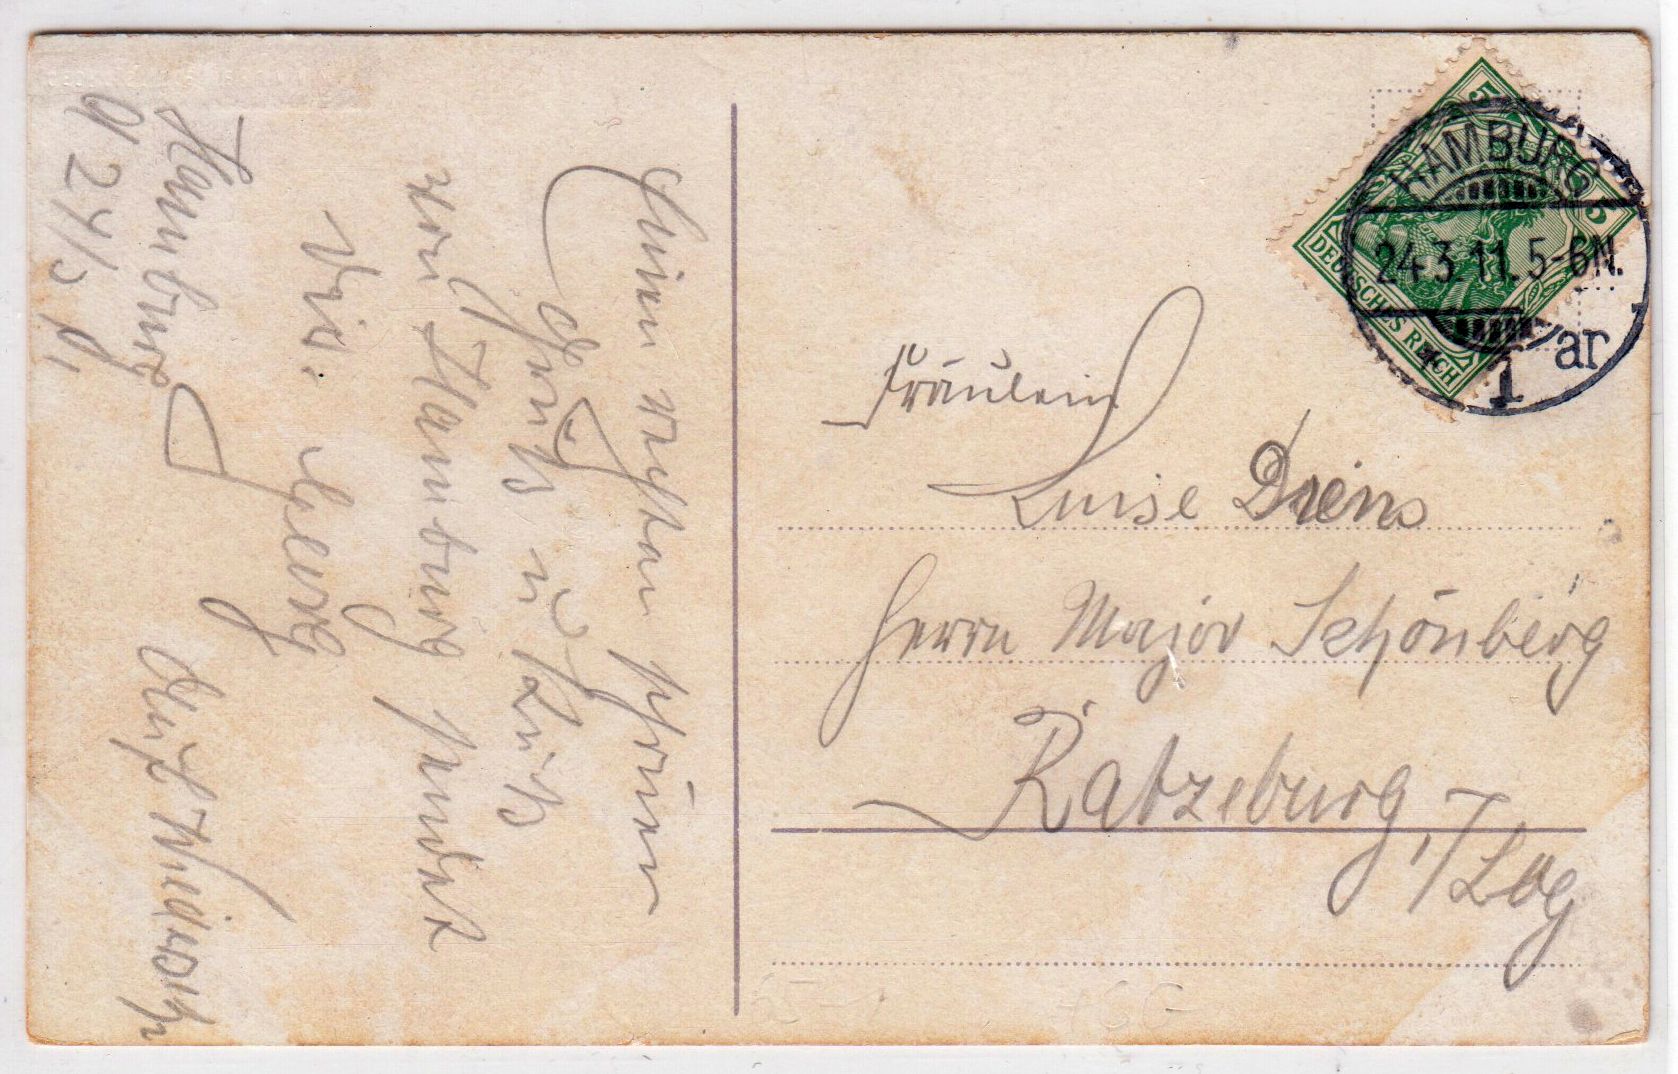 Hamburg
d 24/3 11.
Einen recht schönen
Gruß u Kuß
von Hamburg sendet
Dir. Georg
Auf Wiedersehn
Fräulein
Luise Driens
Herrn Major Schönberg
Ratzeburg, / Lbg
5 5
DEUTSCHES REICH
HAMBURG
24.3.11. 5-6N.
* 1 ar